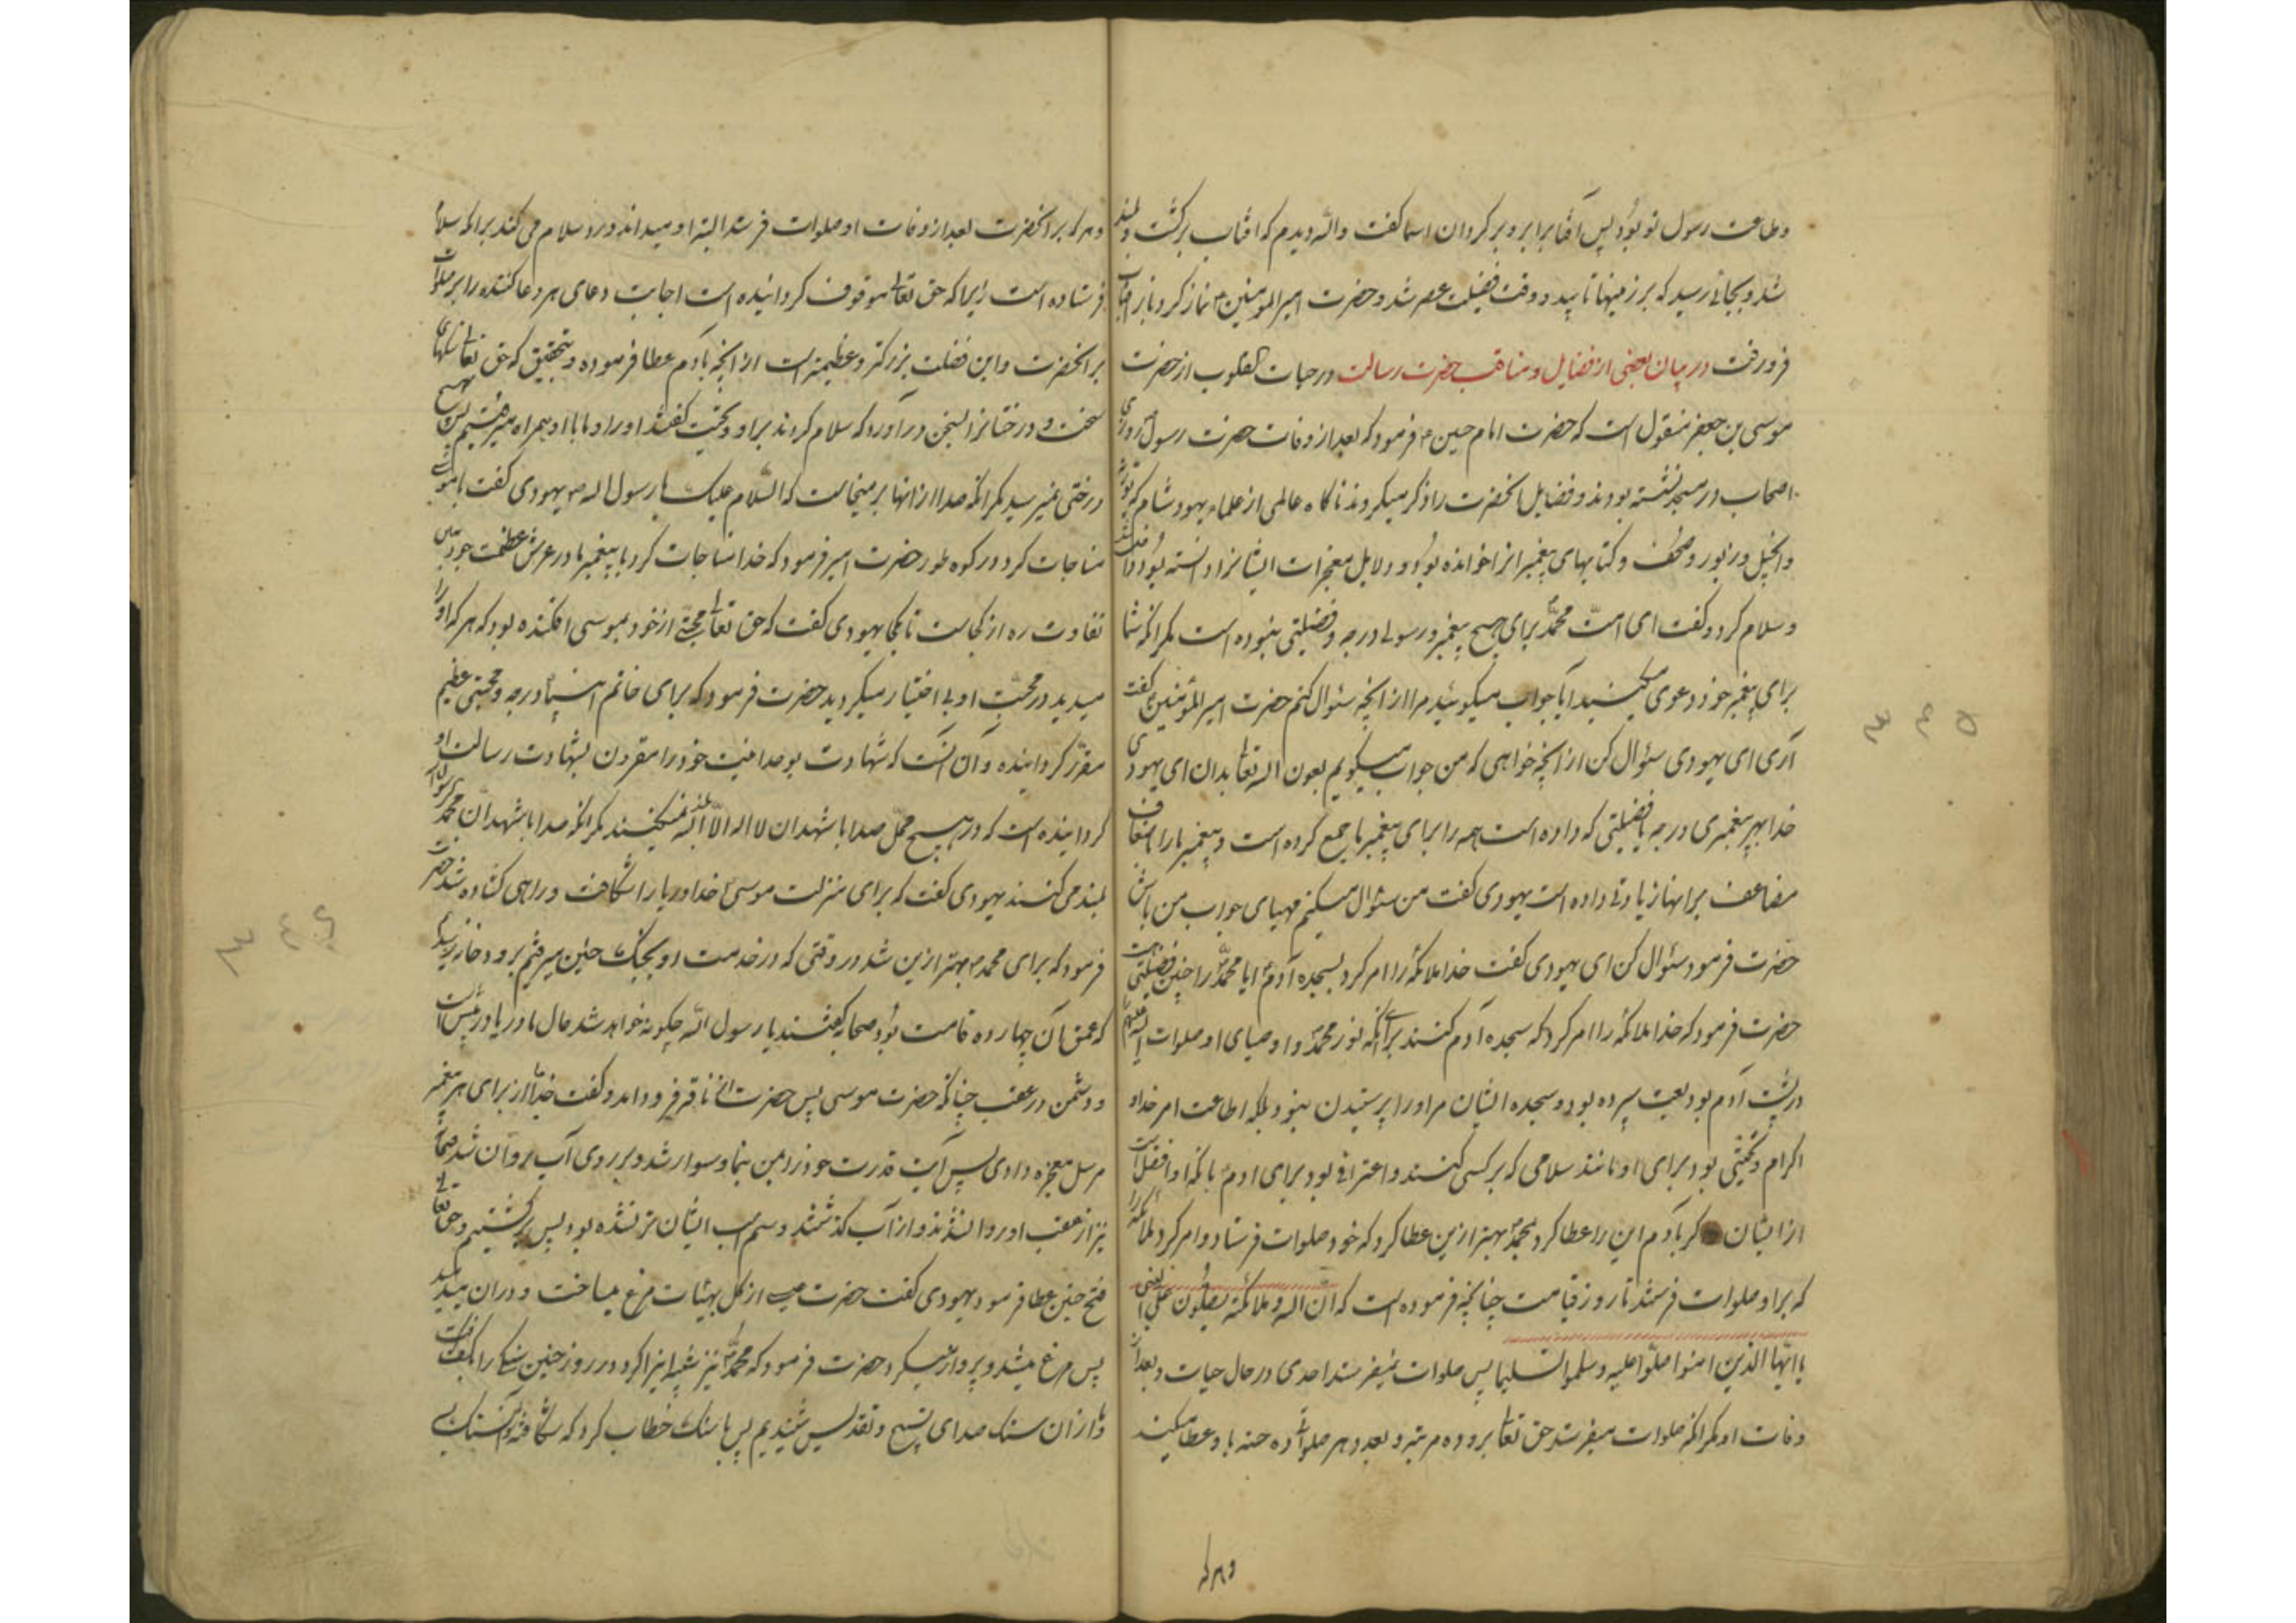 وطاعت رسول تو بود پس آفتابرا برو برگردان اسما گفت والله دیدم که افتاب برگشت و بلند
شد و بجائی رسید که بر زمینها تابید و وقت فضیلت عصر شد و حضرت امیرالمومنین ع نماز کرد و باز افتاب
فرو رفت در بیان بعضی از فضایل و مناقب حضرت رسالت در حیات القلوب از حضرت
موسی بن جعفر منقول است که حضرت امام حسین ع فرمود که بعد از وفات حضرت رسول ص روزی
اصحاب در مسجد نشسته بودند و فضایل انحضرت را ذکر میکردند ناگاه عالمی از علماء یهود شام که توریة
و انجیل و زبور و صحف و کتابهای پیغمبرانرا خوانده بود و دلایل معجزات ایشانرا دانسته بود
وسلام کرد و گفت ای امت محمد ص برای هیچ پیغمبر و رسولی درجه و فضیلتی نبوده است مگر انکه شما
برای پیغمبر خود دعوی میکنید ایا جواب میگوئید مرا از انچه سئوال کنم حضرت امیرالمؤمنین ع گفت
آری ای یهودی سئوال کن از انچه خواهی که من جواب میگویم بعون اله تعا بدان ای یهودی
خدا بهر پیغمبری درجه یا فضیلتی که داده است همه را برای پیغمبر ما جمع کرده است و پیغمبر ما را اضعاف
مضاعف بر انها زیادتی داده است یهودی گفت من سئوال میکنم مهیای جواب من باش
حضرت فرمود سئوال کن ای یهودی گفت خدا ملائکه را امر کرد بسجده آدم ع ایا محمد ص را چنین فضیلتی هست
حضرت فرمود که خدا ملائکه را امر کرد که سجده آدم کنند برای انکه نور محمد ص و اوصیای او صلوات الله علیهم
در پشت آدم بودیعت سپرده بود و سجده ایشان مر اورا پرستیدن نبود بلکه اطاعت امر خدا و
اکرام و تحیتی بود برای او مانند سلامی که بر کسی کنند و اعترافی بود برای ادم ع بانکه او افضل است
از ایشان کر بآدم این را عطا کرد بمحمد ص بهتر ازین عطا کرد که خود صلوات فرستاد و امر کرد ملائکه را
که بر او صلوات فرستند تا روز قیامت چنانچه فرموده است که ان اله وملائکته یصلون علی النبی
یا ایها الذین امنوا صلوا علیه وسلموا تسلیما پس صلوات نمیفرستد احدی در حال حیات و بعد از
وفات او مگر انکه صلوات میفرستد حق تعا بر و ده مرتبه و بعدد هر صلواتی ده حسنه باو عطا میکند
وهر که
وهر که بر انحضرت بعد از وفات او صلوات فرستد البته او میداند و رد سلام می کند برا که سلام
فرستاده است زیرا که حق تعالی موقوف کردانیده است اجابت دعای هر دعا کننده را بر صلوات
بر انحضرت و این فضلت بزرکتر و عظیمتر است از انچه بآدم عطا فرموده و بتحقیق که حق تعالی سنکهای
سخت و درختانرا بسخن در آورد که سلام کردند بر او و تحیت گفتند اورا و ما با او همراه میرفتیم پس بهیچ
درختی نمیرسید مگر انکه صدا از انها بر میخاست که السلام علیک یا رسول اله ص یهودی گفت با موسی
مناجات کرد در کوه طور حضرت امیر فرمود که خدا مناجات کرد با پیغمبر ما در عرش عظمت خود ببین
تفاوت ره از کجاست تا بکجا یهودی گفت که حق تعالی محبتی از خود بموسی افکنده بود که هر که اورا
میدید در محبت او بی اختیار میگردید حضرت فرمود که برای خاتم انبیاء درجه و محبتی عظیم
مقرر کردانیده و آن انست که شهادت بوحدانیت خود را مقرون بشهادت رسالت او
کردانیده است که در هیچ محل صدا با شهد ان لا اله الا الله بلند نمیکنند مگر انکه صدا با شهد ان محمد رسول الله
بلند می کنند یهودی گفت که برای منزلت موسی ع خدا دریا را شکافت و راهی کشاده شد حضرت
فرمود که برای محمد ص بهتر ازین شد در وقتی که در خدمت او بجنک حنین میرفتیم برودخانه رسیدیم
که عمق آن چهارده قامت بود صحابه کفتند یا رسول الله چکونه خواهد شد حال ما دریا در پیش است
و دشمن در عقب چنانکه حضرت موسی پس حضرت از ناقه فرود امد و گفت خدایا از برای هر پیغمبر
مرسل معجزه دادی پس آیت قدرت خود را بمن بنما و سوار شد و بر روی آب روان شد صحابه
نیز از عقب او روانه شدند و از آب کذشتند و سم اسب ایشان تر نشده بود پس برگشتیم و حق تعالی
فتح حنین عطا فرمود یهودی گفت حضرت عیسی از کل بهیئات مرغ میساخت و دران میدمید
پس مرغ میشد و پرواز میکرد حضرت فرمود که محمد ص نیز شبیه اینرا کرد در روز حنین سنکی را بکف گرفت
و ما از ان سنک صدای تسبیح و تقدیس شنیدیم پس با سنک خطاب کرد که شکافته شو سنک سه